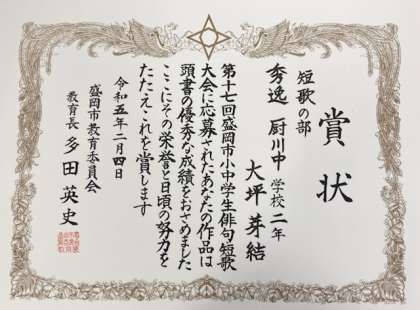 賞状
短歌の部
秀逸 厨川中学校二年
大坪芽結
第十七回盛岡市小中学生俳句短歌
大会に応募されたあなたの作品は
頭書の優秀な成績をおさめました
ここにその栄誉と日頃の努力を
たたえこれを賞します
令和五年二月四日
盛岡市教育委員会
教育長 多田英史